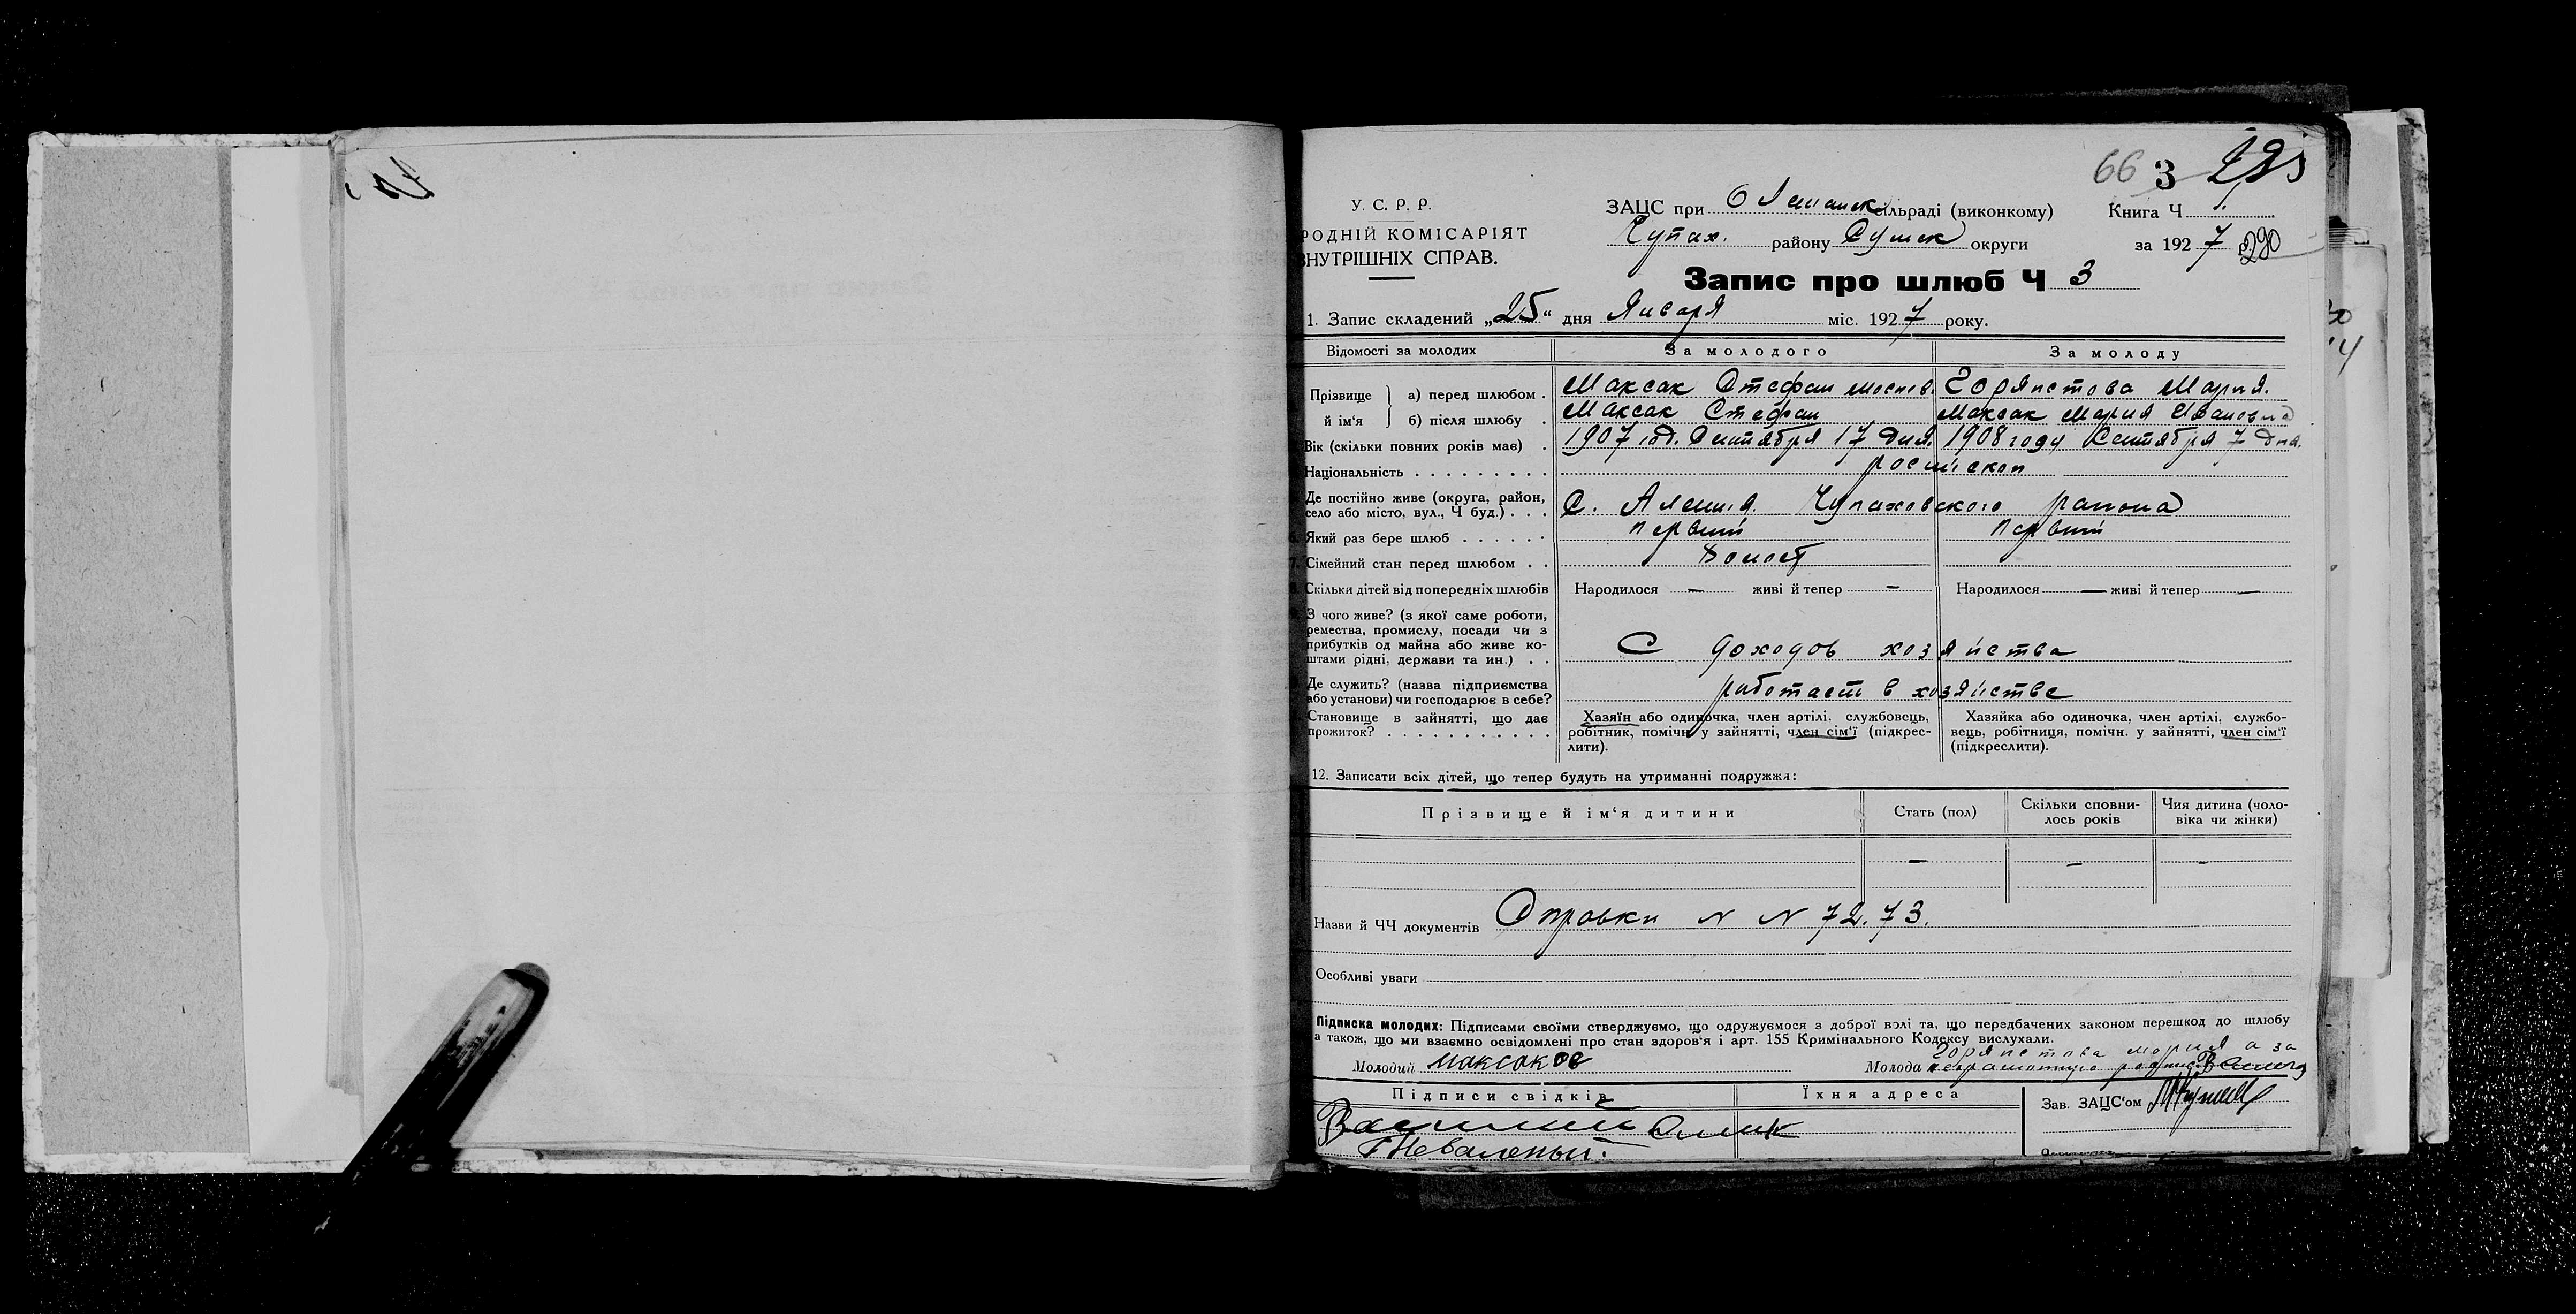 66 3
У. С. Р. Р.
РОДНІЙ КОМІСАРІЯТ
ВНУТРІШНІХ СПРАВ.
ЗАЦС при Олешанск сільраді (виконкому) Книга Ч 1.
Чупах. району Сумск округи за 1927 р. 290
Запис про шлюб Ч 3
1. Запис складений „25“ дня Января міс. 1927 року.
Відомості за молодих За молодого За молоду
Прізвище й ім'я а) перед шлюбом . Максак Стефан Горяистова Мария.
б) після шлюбу . Максак Стефан Максак Мария Ивановна
Вік (скільки повних років має) . 1907 год. Сентября 17 дня. 1908 году Сентября 7 дня.
Національність . . . . . . . . .
Де постійно живе (округа, район, село або місто, вул., Ч буд.) . . . С. Алешня. Чупаховского района
Який раз бере шлюб . . . . . . первый первый
7. Сімейний стан перед шлюбом . . Холост
Скільки дітей від попередніх шлюбів Народилося — живі й тепер — Народилося — живі й тепер —
З чого живе? (з якої саме роботи, ремества, промислу, посади чи з прибутків од майна або живе коштами рідні, держави та ин.) . . С доходов хозяйства
Де служить? (назва підприємства або установи) чи господарює в себе? работает в хозяйстве
Становище в зайнятті, що дає прожиток? . . . . . . . . . . .
Хазяїн або одиночка, член артілі, службовець, робітник, помічн. у зайнятті, член сім'ї (підкреслити).
Хазяйка або одиночка, член артілі, службовець, робітниця, помічн. у зайнятті, член сім'ї (підкреслити).
12. Записати всіх дітей, що тепер будуть на утриманні подружжя:
Прізвище й ім'я дитини Стать (пол) Скільки сповнилось років Чия дитина (чоловіка чи жінки)
— — —
Назви й ЧЧ документів Справки N N 72. 73.
Особливі уваги
Підписка молодих: Підписами своїми стверджуємо, що одружуємося з доброї волі та, що передбачених законом перешкод до шлюбу
а також, що ми взаємно освідомлені про стан здоров'я і арт. 155 Кримінального Кодексу вислухали.
Горяистова Мария а за
Молодий Максаков Молода неграмотную
Підписи свідків Їхня адреса Зав. ЗАЦС'ом
Василий